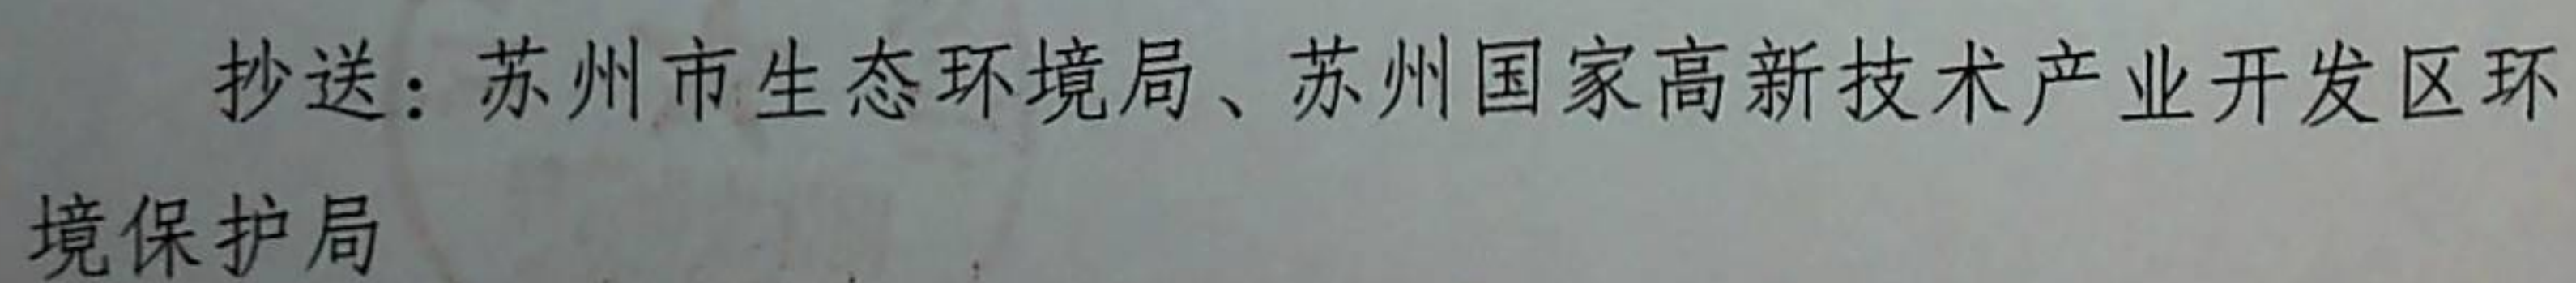 抄送：苏州市生态环境局、苏州国家高新技术产业开发区环
境保护局